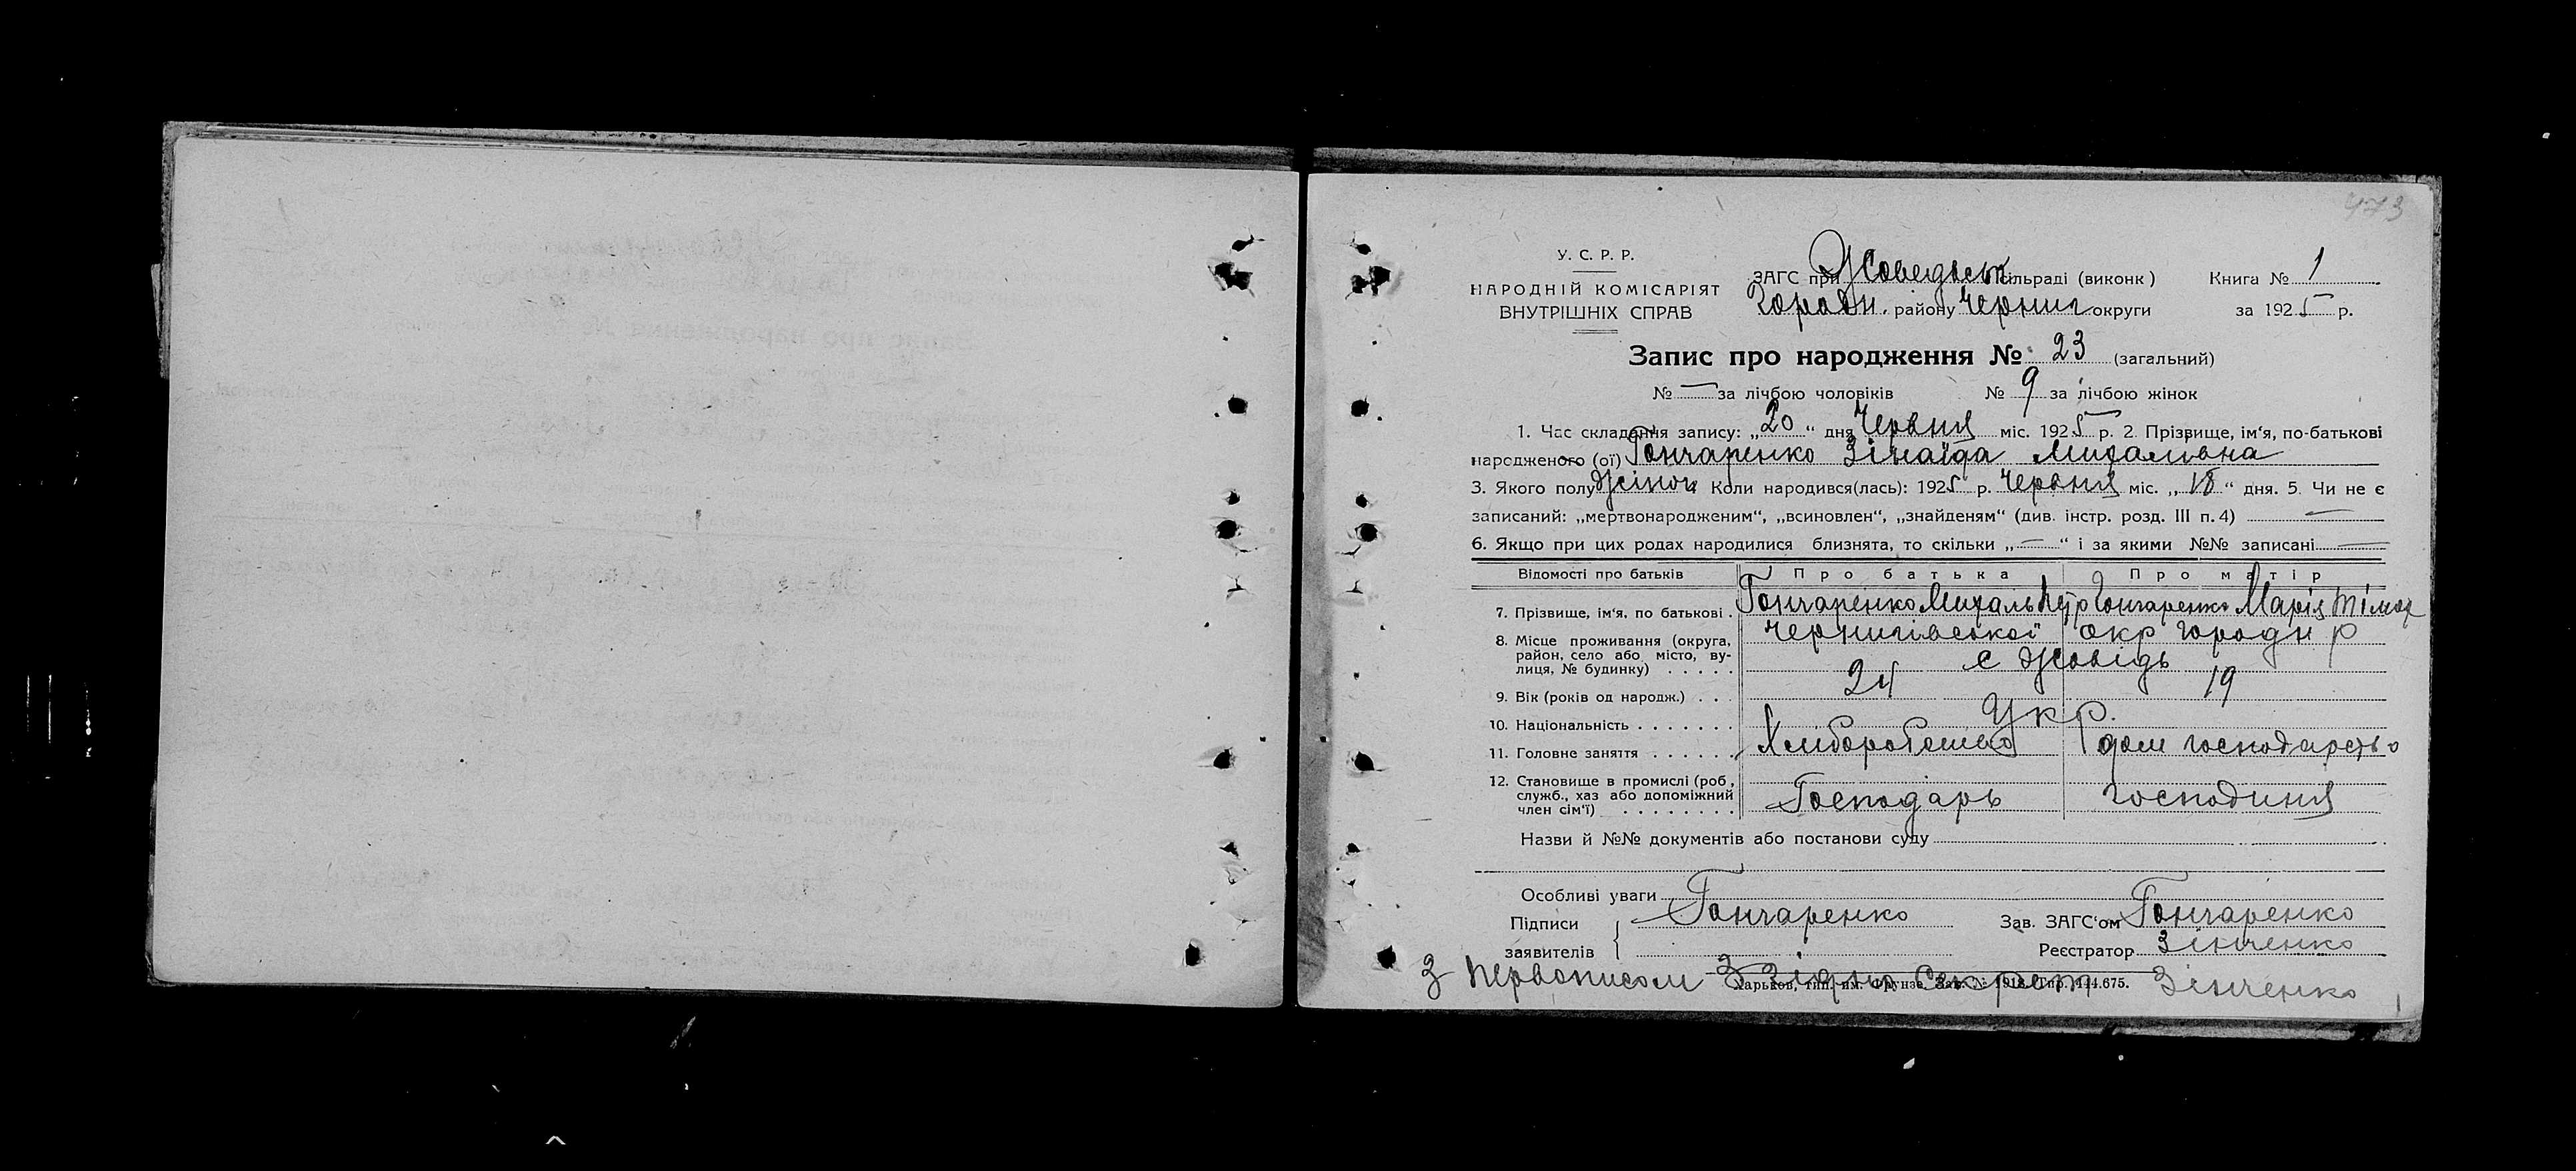 473
У. С. Р. Р.
НАРОДНІЙ КОМІСАРІЯТ
ВНУТРІШНІХ СПРАВ
ЗАГС при Жоведьськ сільраді (виконк)
Городн. району Черниг округи
Книга № 1
за 1925 р.
Запис про народження № 23 (загальний)
№ — за лічбою чоловіків № 9 за лічбою жінок
1. Час складення запису: „20“ дня Червня міс. 1925 р. 2. Прізвище, ім‘я, по-батькові
народженого (ої) Гончаренко Зінаїда Михалівна
3. Якого полу жіноч Коли народився(лась): 1925 р. Червня міс. „18“ дня. 5. Чи не є
записаний: „мертвонародженим“, „всиновлен“, „знайденям“ (див. інстр. розд. III п. 4) —
6. Якщо при цих родах народилися близнята, то скільки „—“ і за якими №№ записані —
Відомості про батьків Про батька Про матір
7. Прізвище, ім‘я, по батькові. Гончаренко Михаль Петр Гончаренко Марія Тімоф
8. Місце проживання (округа, Чернигівської окр Городн р
район, село або місто, ву-
лиця, № будинку) с Жовідь
9. Вік (років од народж.) 24 19
10. Національність Укр.
11. Головне заняття Хліборобство дом господарство
12. Становище в промислі (роб,
служб., хаз або допоміжний Господарь господиня
член сім‘ї)
Назви й №№ документів або постанови суду
Особливі уваги
Підписи Гончаренко Зав. ЗАГС‘ом Гончаренко
заявителів Реєстратор Зінченко
З первописом З зідно Секрет Зінченко
Харьков, тип. им. Фрунзе. Зак. № 1918. Тир. 144.675.